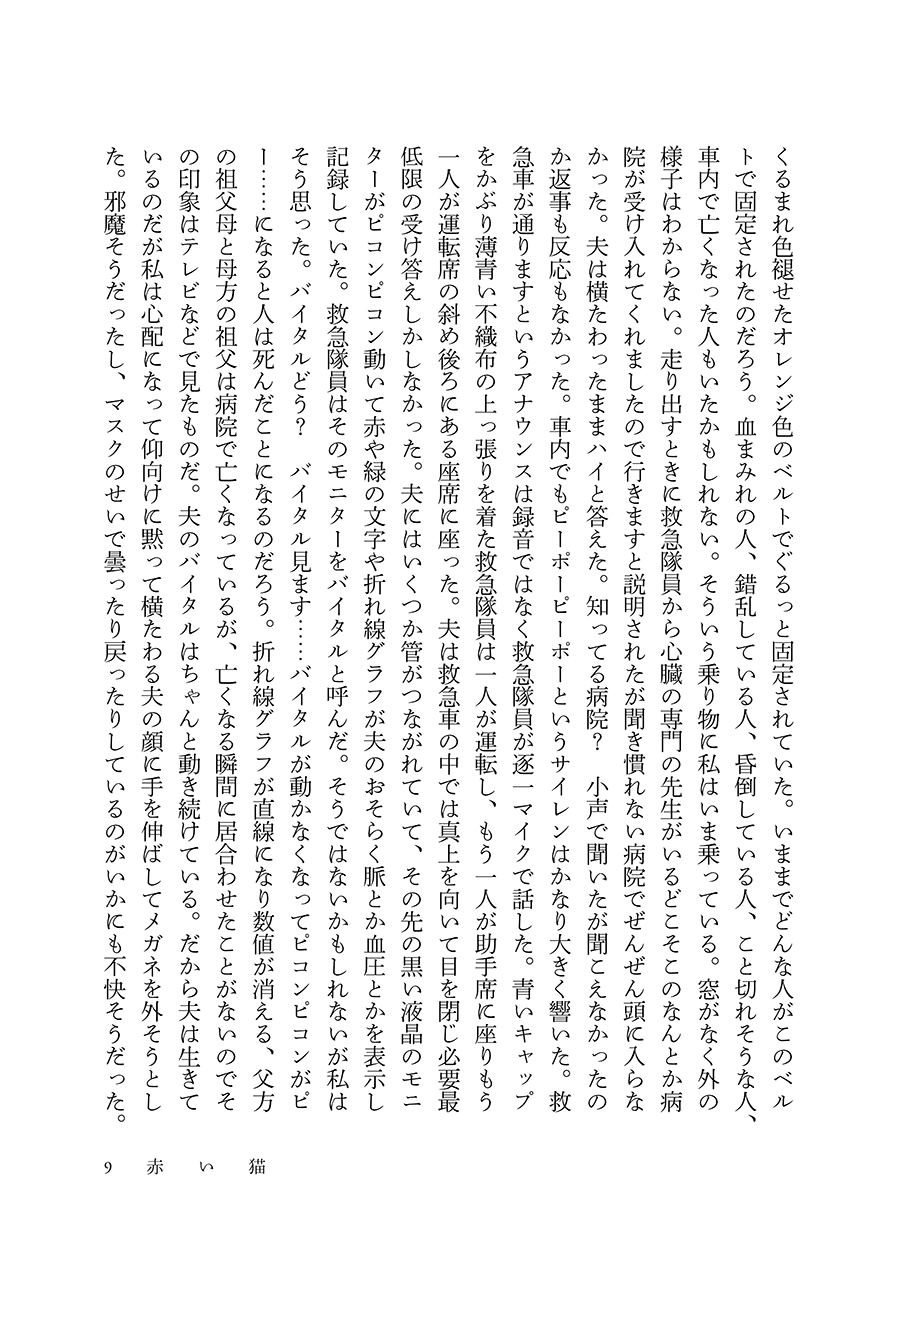 くるまれ色褪せたオレンジ色のベルトでぐるっと固定されていた。いままでどんな人がこのベル
トで固定されたのだろう。血まみれの人、錯乱している人、昏倒している人、こと切れそうな人、
車内で亡くなった人もいたかもしれない。そういう乗り物に私はいま乗っている。窓がなく外の
様子はわからない。走り出すときに救急隊員から心臓の専門の先生がいるどこそこのなんとか病
院が受け入れてくれましたので行きますと説明されたが聞き慣れない病院でぜんぜん頭に入らな
かった。夫は横たわったままハイと答えた。知ってる病院？　小声で聞いたが聞こえなかったの
か返事も反応もなかった。車内でもピーポーピーポーというサイレンはかなり大きく響いた。救
急車が通りますというアナウンスは録音ではなく救急隊員が逐一マイクで話した。青いキャップ
をかぶり薄青い不織布の上っ張りを着た救急隊員は一人が運転し、もう一人が助手席に座りもう
一人が運転席の斜め後ろにある座席に座った。夫は救急車の中では真上を向いて目を閉じ必要最
低限の受け答えしかしなかった。夫にはいくつか管がつながれていて、その先の黒い液晶のモニ
ターがピコンピコン動いて赤や緑の文字や折れ線グラフが夫のおそらく脈とか血圧とかを表示し
記録していた。救急隊員はそのモニターをバイタルと呼んだ。そうではないかもしれないが私は
そう思った。バイタルどう？　バイタル見ます……バイタルが動かなくなってピコンピコンがピ
ー……になると人は死んだことになるのだろう。折れ線グラフが直線になり数値が消える、父方
の祖父母と母方の祖父は病院で亡くなっているが、亡くなる瞬間に居合わせたことがないのでそ
の印象はテレビなどで見たものだ。夫のバイタルはちゃんと動き続けている。だから夫は生きて
いるのだが私は心配になって仰向けに黙って横たわる夫の顔に手を伸ばしてメガネを外そうとし
た。邪魔そうだったし、マスクのせいで曇ったり戻ったりしているのがいかにも不快そうだった。
9 赤い猫